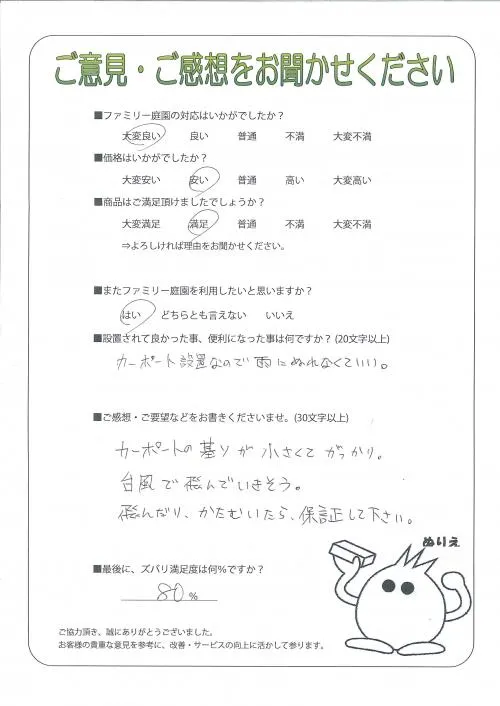 ご意見・ご感想をお聞かせください
■ファミリー庭園の対応はいかがでしたか？
大変良い 良い 普通 不満 大変不満
■価格はいかがでしたか？
大変安い 安い 普通 高い 大変高い
■商品はご満足頂けましたでしょうか？
大変満足 満足 普通 不満 大変不満
⇒よろしければ理由をお聞かせください。
■またファミリー庭園を利用したいと思いますか？
はい どちらとも言えない いいえ
■設置されて良かった事、便利になった事は何ですか？(20文字以上)
カーポート設置なので雨にぬれなくていい。
■ご感想・ご要望などをお書きくださいませ。(30文字以上)
カーポートの基ソが小さくてがっかり。
台風で飛んでいきそう。
飛んだり、かたむいたら、保証して下さい。
ぬりえ
■最後に、ズバリ満足度は何％ですか？
80 %
ご協力頂き、誠にありがとうございました。
お客様の貴重な意見を参考に、改善・サービスの向上に活かして参ります。